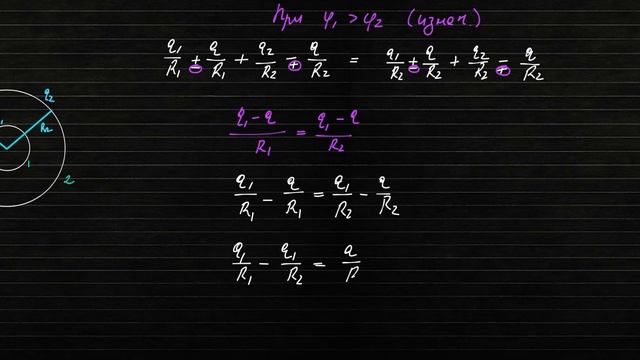 При φ₁ > φ₂ (изнач.)
q₁/R₁ ± q/R₁ + q₂/R₂ ∓ q/R₂ = q₁/R₂ ± q/R₂ + q₂/R₂ ∓ q/R₂
(q₁ - q)/R₁ = (q₁ - q)/R₂
q₁/R₁ - q/R₁ = q₁/R₂ - q/R₂
q₁/R₁ - q₁/R₂ = q/R
q₂
R₂
1
2